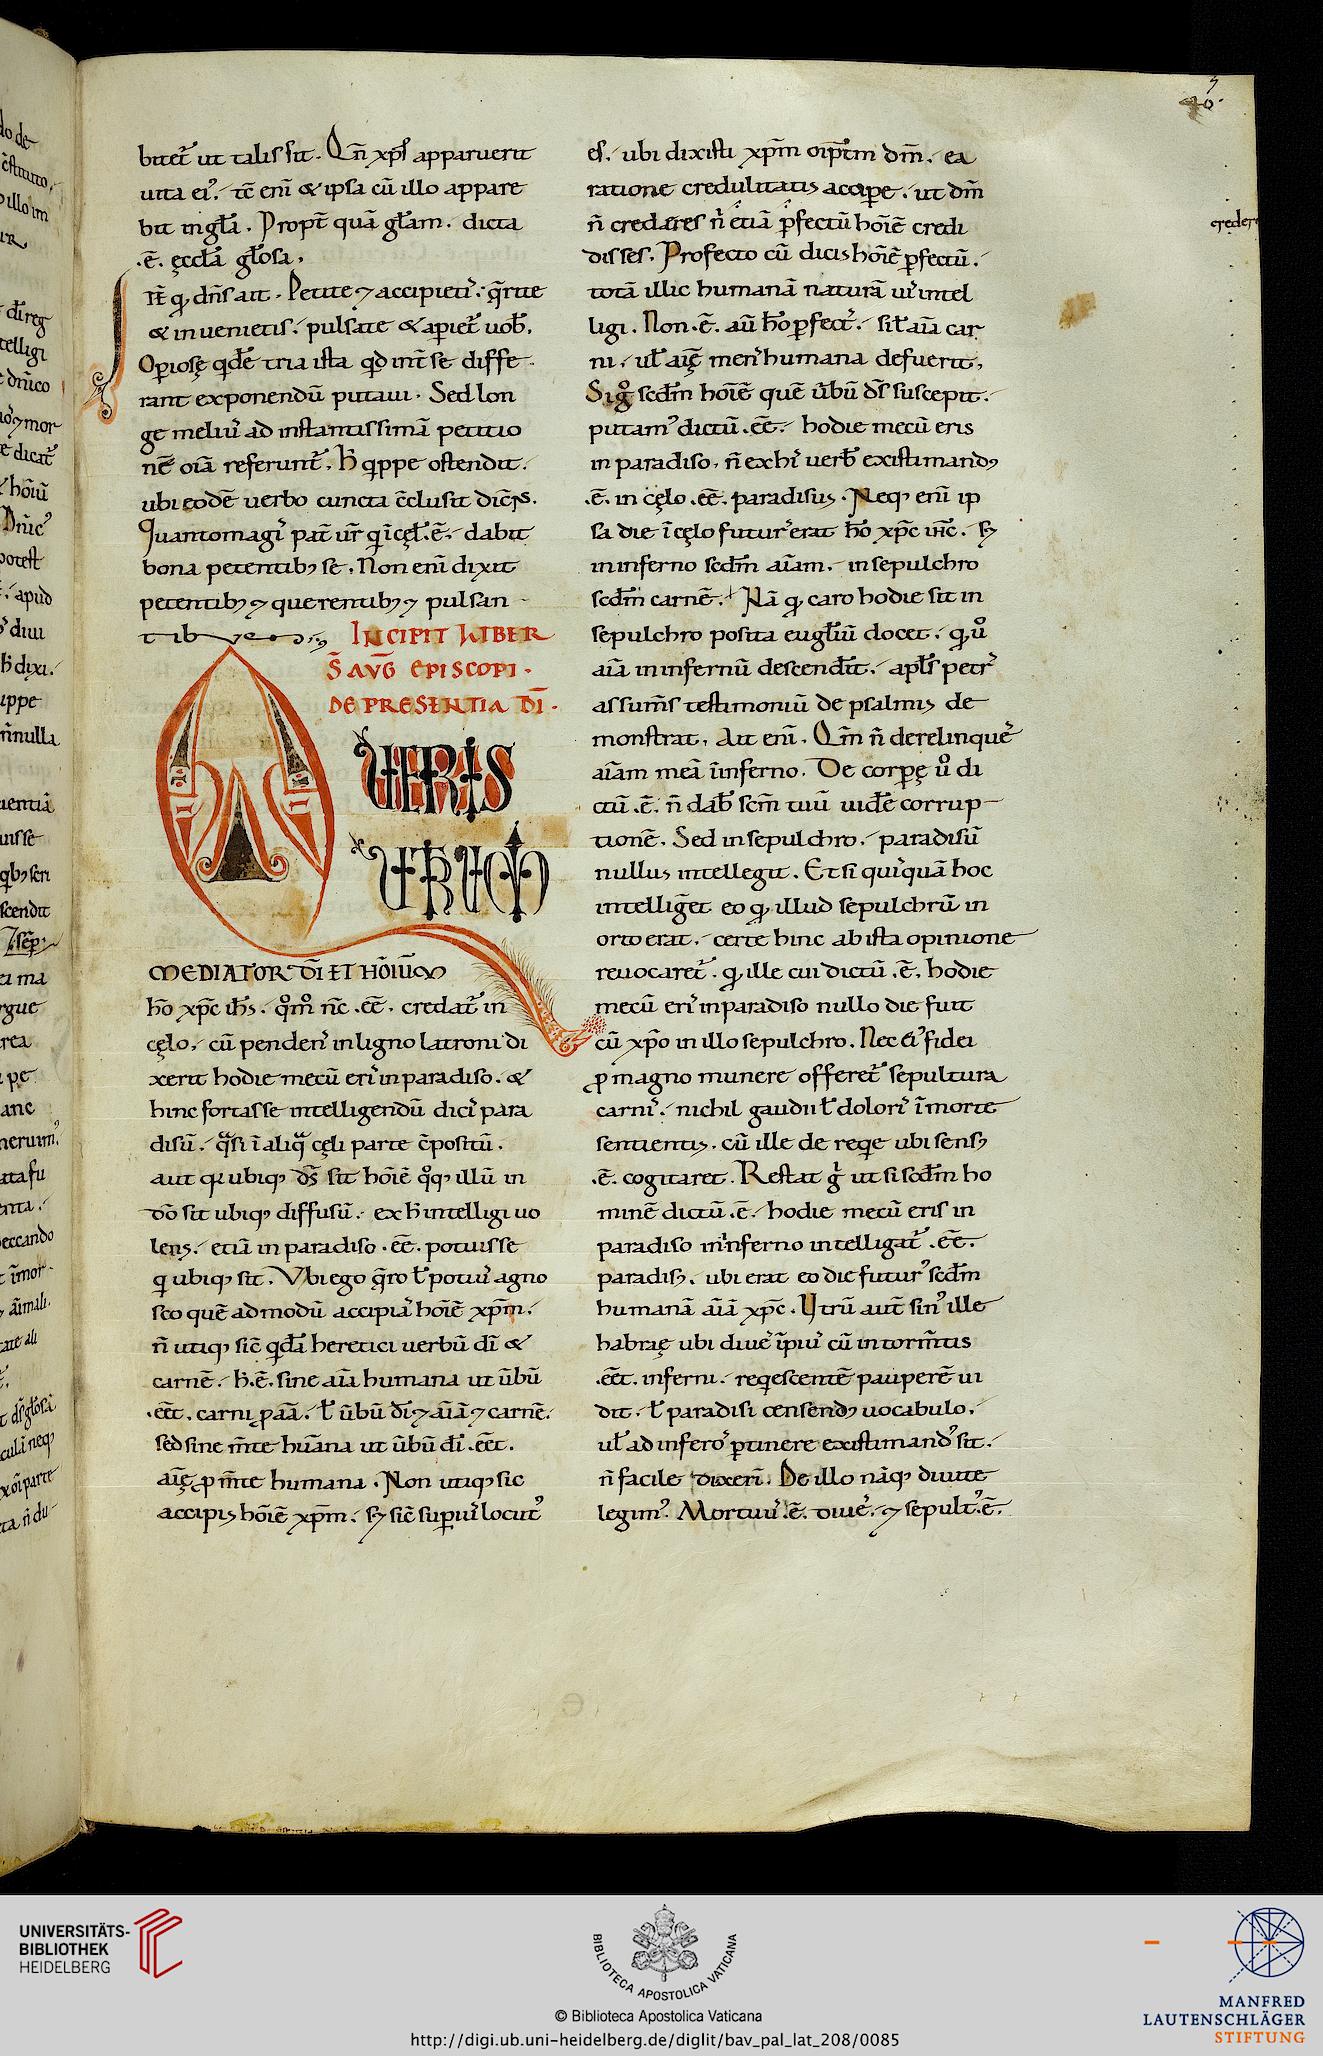 bitet̄ ut talis sit. Qn̄ xp̄s apparuerit
uita ei᷒. tc̄ eni᷒ & ipsa cū illo appare
bit in gl̄a. Propt̄ quā gl̄am. dicta
.ē. ęccl̄a gl̄osa.
It̄ qđ dn̄s ait. Petite ⁊ accipietis. q̄rite
& inuenietis. pulsate & apiet̄ uob̄.
Opiosę qđē tria ista qđ int̄ se diffe
rant exponendū putaui. Sed lon
ge meli᷒ ad instantissimā petitio
nē oīa referunt̄. h̄ qippe ostendit.
ubi eodē uerbo cuncta c̄clusit dic̄s.
Quantomagi᷒ pat̄ ur̄ q i cęl᷒.ē. dabit
bona petentib; se. Non eni᷒ dixit
petentib; ⁊ querentib; ⁊ pulsan
tib;
INCIPIT LIBER
S̄ AUḠ EPISCOPI.
DE PRESENTIA DĪ.
QUERIS
UTRUM
MEDIATOR DĪ ET HOĪUM
hō xp̄c ih̄s. qm̊ nc̄ .eē. credat̄ in
cęlo. cū penden᷒ in ligno latroni di
xerit hodie mecū eri᷒ in paradiso. &
hinc fortasse intelligendū dici᷒ para
disū. qͣsi ī aliqͣ cęli parte c̄positū.
aut qa ubiq; d̄s sit hoīē qq; illū in
dō sit ubiq; diffusū. ex h̄ intelligi uo
lens. etiā in paradiso .eē. potuisse
q ubiq; sit. Vbi ego q̄ro ł poti᷒ agno
sco quē admodū accipia᷒ hoīē xp̄m.
n̄ utiq; sic̄ qdā heretici uerbū dī &
carnē. h̄.ē. sine aīa humana ut ūbū
.eēt. carni p aīā. ł ūbū dī ⁊ aīā ⁊ carnē.
sed sine m̄te hūana ut ūbū dī .eēt.
aīę p m̄te humana. Non utiq; sic
accipis hoīē xp̄m. s; sic̄ supi᷒ locut᷒
es. ubi dixisti xp̄m oip̄tm dm̄. ea
ratione credulitatis accipe. ut dm̄
n̄ crederes n̄ etiā pfectū hoīē credi
disses. Profecto cū dicis hoīē pfectū.
totā illic humanā naturā ui᷒ intel
ligi. Non .ē. aū hō pfect᷒. si ł aīa car
ni. ul̄ aīę men᷒ humana defuerit.
Sig̊ scdm̄ hoīē quē ūbū dī suscepit.
putam᷒ dictū .eē. hodie mecū eris
in paradiso. n̄ ex hi᷒ uerb̄ existimand᷒
.ē. in cęlo .eē. paradisus. Neq; eni᷒ ip
sa die ī cęlo futur᷒ erat hō xp̄c ih̄c. s;
in inferno scdm̄ aīam. in sepulchro
scdm̄ carnē. Nā qđ caro hodie sit in
sepulchro posita eugl̄iū docet. qđ ů
aīa in infernū descendit. apl̄s petr᷒
assumens testimoniū de psalmis de
monstrat. Ait eni᷒. Qm̄ n̄ derelinque᷒
aīam meā ī inferno. De corpę ů di
ctū .ē. n̄ dab᷒ sc̄m tuū uidē corrup
tionē. Sed in sepulchro. paradisū
nullus intellegit. Et si qui᷒quā hoc
intelliget eo qđ illud sepulchrū in
orto erat. certe hinc ab ista opinione
reuocaret̄. qđ ille cui dictū .ē. hodie
mecū eri᷒ in paradiso nullo die fuit
cū xp̄o in illo sepulchro. Nec ei᷒ fidei
p magno munere offeret̄ sepultura
carni᷒. nichil gaudii ł dolori᷒ ī morte
sentientis. cū ille de reqe ubi sens;
.ē. cogitaret. Restat g᷒ ut si scdm̄ ho
minē dictū .ē. hodie mecū eris in
paradiso in inferno intelligat̄ .eē.
paradis;. ubi erat eo die futur᷒ scdm̄
humanā aīā xp̄c. Vtrū aūt sin᷒ ille
habraę ubi diue᷒ īpi᷒ cū in torm̄tis
.eēt. inferni. reqescentē pauperē ui
dit. ł paradisi censend᷒ uocabulo.
ul̄ ad infero᷒ ptinere existimand᷒ sit.
n̄ facile dixeri᷒. De illo nāq; diuite
legim᷒. Mortuu᷒ .ē. diue᷒. ⁊ sepult᷒.ē.
UNIVERSITÄTS-
BIBLIOTHEK
HEIDELBERG
BIBLIOTECA APOSTOLICA VATICANA
© Biblioteca Apostolica Vaticana
http://digi.ub.uni-heidelberg.de/diglit/bav_pal_lat_208/0085
MANFRED
LAUTENSCHLÄGER
STIFTUNG